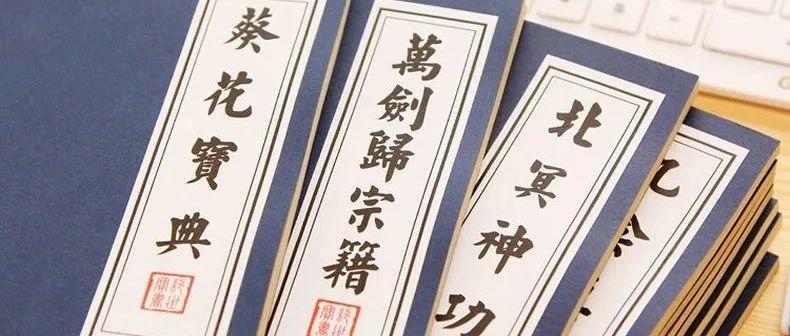 葵花寶典
萬劍歸宗籍
北冥神功